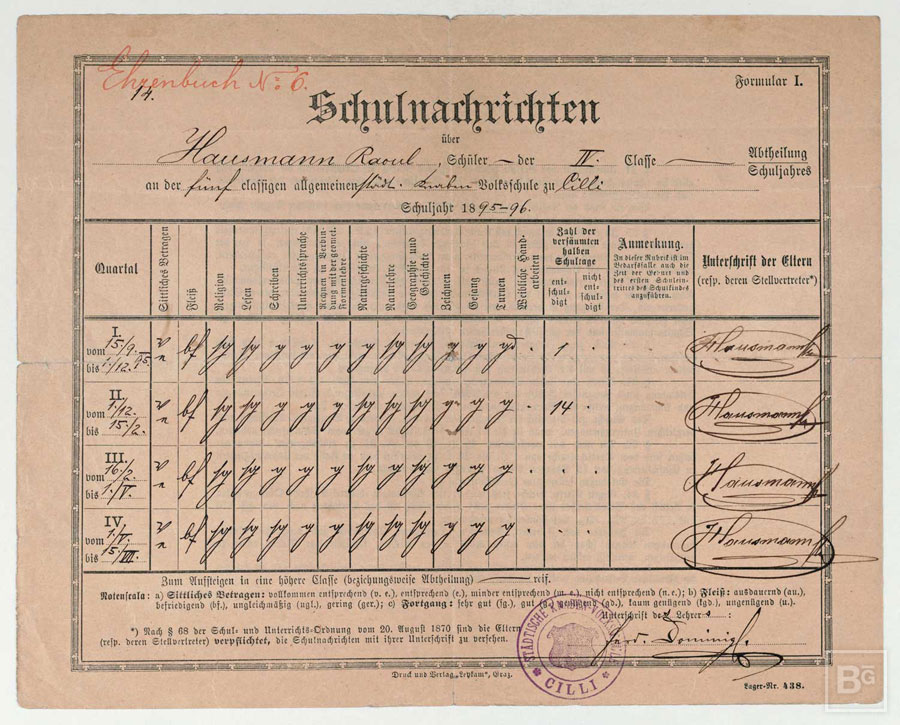 Ehrenbuch No 6.
14.
Formular I.
Schulnachrichten
über
Hausmann Raoul, Schüler – der IV. Classe — Abtheilung
Schuljahres
an der fünf classigen allgemeinen städt. Knaben Volksschule zu Cilli
Schuljahr 1895–96.
Quartal
Sittliches Betragen
Fleiß
Religion
Lesen
Schreiben
Unterrichtssprache
Rechnen in Verbindung mit der geomet. Formenlehre
Naturgeschichte
Naturlehre
Geographie und Geschichte
Zeichnen
Gesang
Turnen
Weibliche Handarbeiten
Zahl der versäumten halben Schultage
entschuldigt
nicht entschuldigt
Anmerkung.
In dieser Rubrik ist im
Bedarfsfalle auch die
Zeit der Geburt und
des ersten Schulein-
trittes des Schulkindes
anzuführen.
Unterschrift der Eltern
(resp. deren Stellvertreter*)
I.
vom 15./9. 95.
bis 1./12.
v e bf sg sg g g g sg sg sg g g gd · 1 ·
Hausmann
II.
vom 1./12.
bis 15./2.
v e bf sg sg g g g sg sg sg g g g · 14 ·
Hausmann
III.
vom 16./2.
bis 1./V.
v e bf sg sg g g g sg sg sg g g g · · ·
Hausmann
IV.
vom 1./V.
bis 15./VII.
v e bf sg sg g g g sg sg sg g g g · · ·
Hausmann
Zum Aufsteigen in eine höhere Classe (beziehungsweise Abtheilung) — reif.
Notenscala: a) Sittliches Betragen: vollkommen entsprechend (v. e.), entsprechend (e.), minder entsprechend (m. e.), nicht entsprechend (n. e.); b) Fleiß: ausdauernd (au.),
befriedigend (bf.), ungleichmäßig (ugl.), gering (ger.); c) Fortgang: sehr gut (sg.), gut (g.), genügend (gd.), kaum genügend (kgd.), ungenügend (u.).
Unterschrift des Lehrers:
*) Nach § 68 der Schul- und Unterrichts-Ordnung vom 20. August 1870 sind die Eltern
(resp. deren Stellvertreter) verpflichtet, die Schulnachrichten mit ihrer Unterschrift zu versehen.
STÄDTISCHE KNABEN
CILLI
Druck und Verlag „Leykam“, Graz.
Lager-Nr. 438.
BG